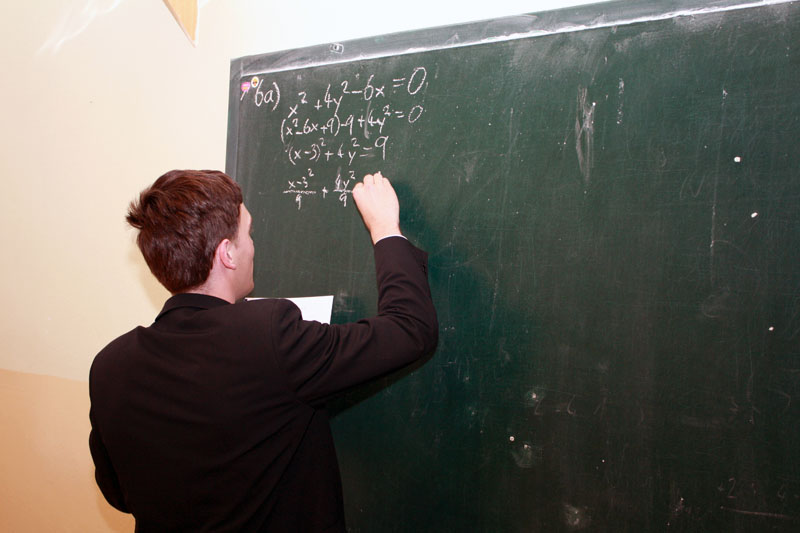 6a) x² + 4y² - 6x = 0
(x² - 6x + 9) - 9 + 4y² = 0
(x - 3)² + 4y² = 9
x - 3²/9 + 4y²/9